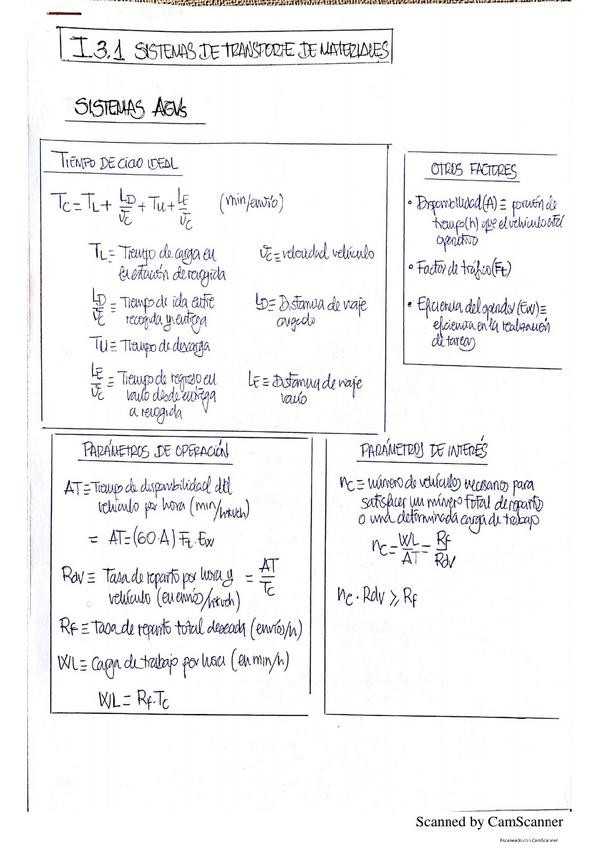 I.3.1 SISTEMAS DE TRANSPORTE DE MATERIALES
SISTEMAS AGVs
TIEMPO DE CICLO IDEAL
Tc = TL + LD/vc + Tu + LE/vc (min/envío)
TL ≡ Tiempo de carga en
la estación de recogida
vc ≡ velocidad vehículo
LD/vc ≡ Tiempo de ida entre
recogida y entrega
LD ≡ Distancia de viaje
cargado
Tu ≡ Tiempo de descarga
LE/vc ≡ Tiempo de regreso en
vacío desde entrega
a recogida
LE ≡ Distancia de viaje
vacío
OTROS FACTORES
• Disponibilidad (A) ≡ porción de
tiempo (h) que el vehículo está
operativo
• Factor de tráfico (Ft)
• Eficiencia del operador (Ew) ≡
eficiencia en la realización
de tareas
PARÁMETROS DE OPERACIÓN
AT ≡ Tiempo de disponibilidad del
vehículo por hora (min/h·veh)
= AT = (60·A) Ft·Ew
Rdv ≡ Tasa de reparto por hora y
vehículo (en envío/h·veh)
= AT/Tc
Rf ≡ Tasa de reparto total deseada (envío/h)
WL ≡ Carga de trabajo por hora (en min/h)
WL = Rf·Tc
PARÁMETROS DE INTERÉS
nc ≡ número de vehículos necesarios para
satisfacer un número total de repartos
o una determinada carga de trabajo
nc = WL/AT = Rf/Rdv
nc · Rdv ≥ Rf
Scanned by CamScanner
Escaneado con CamScanner